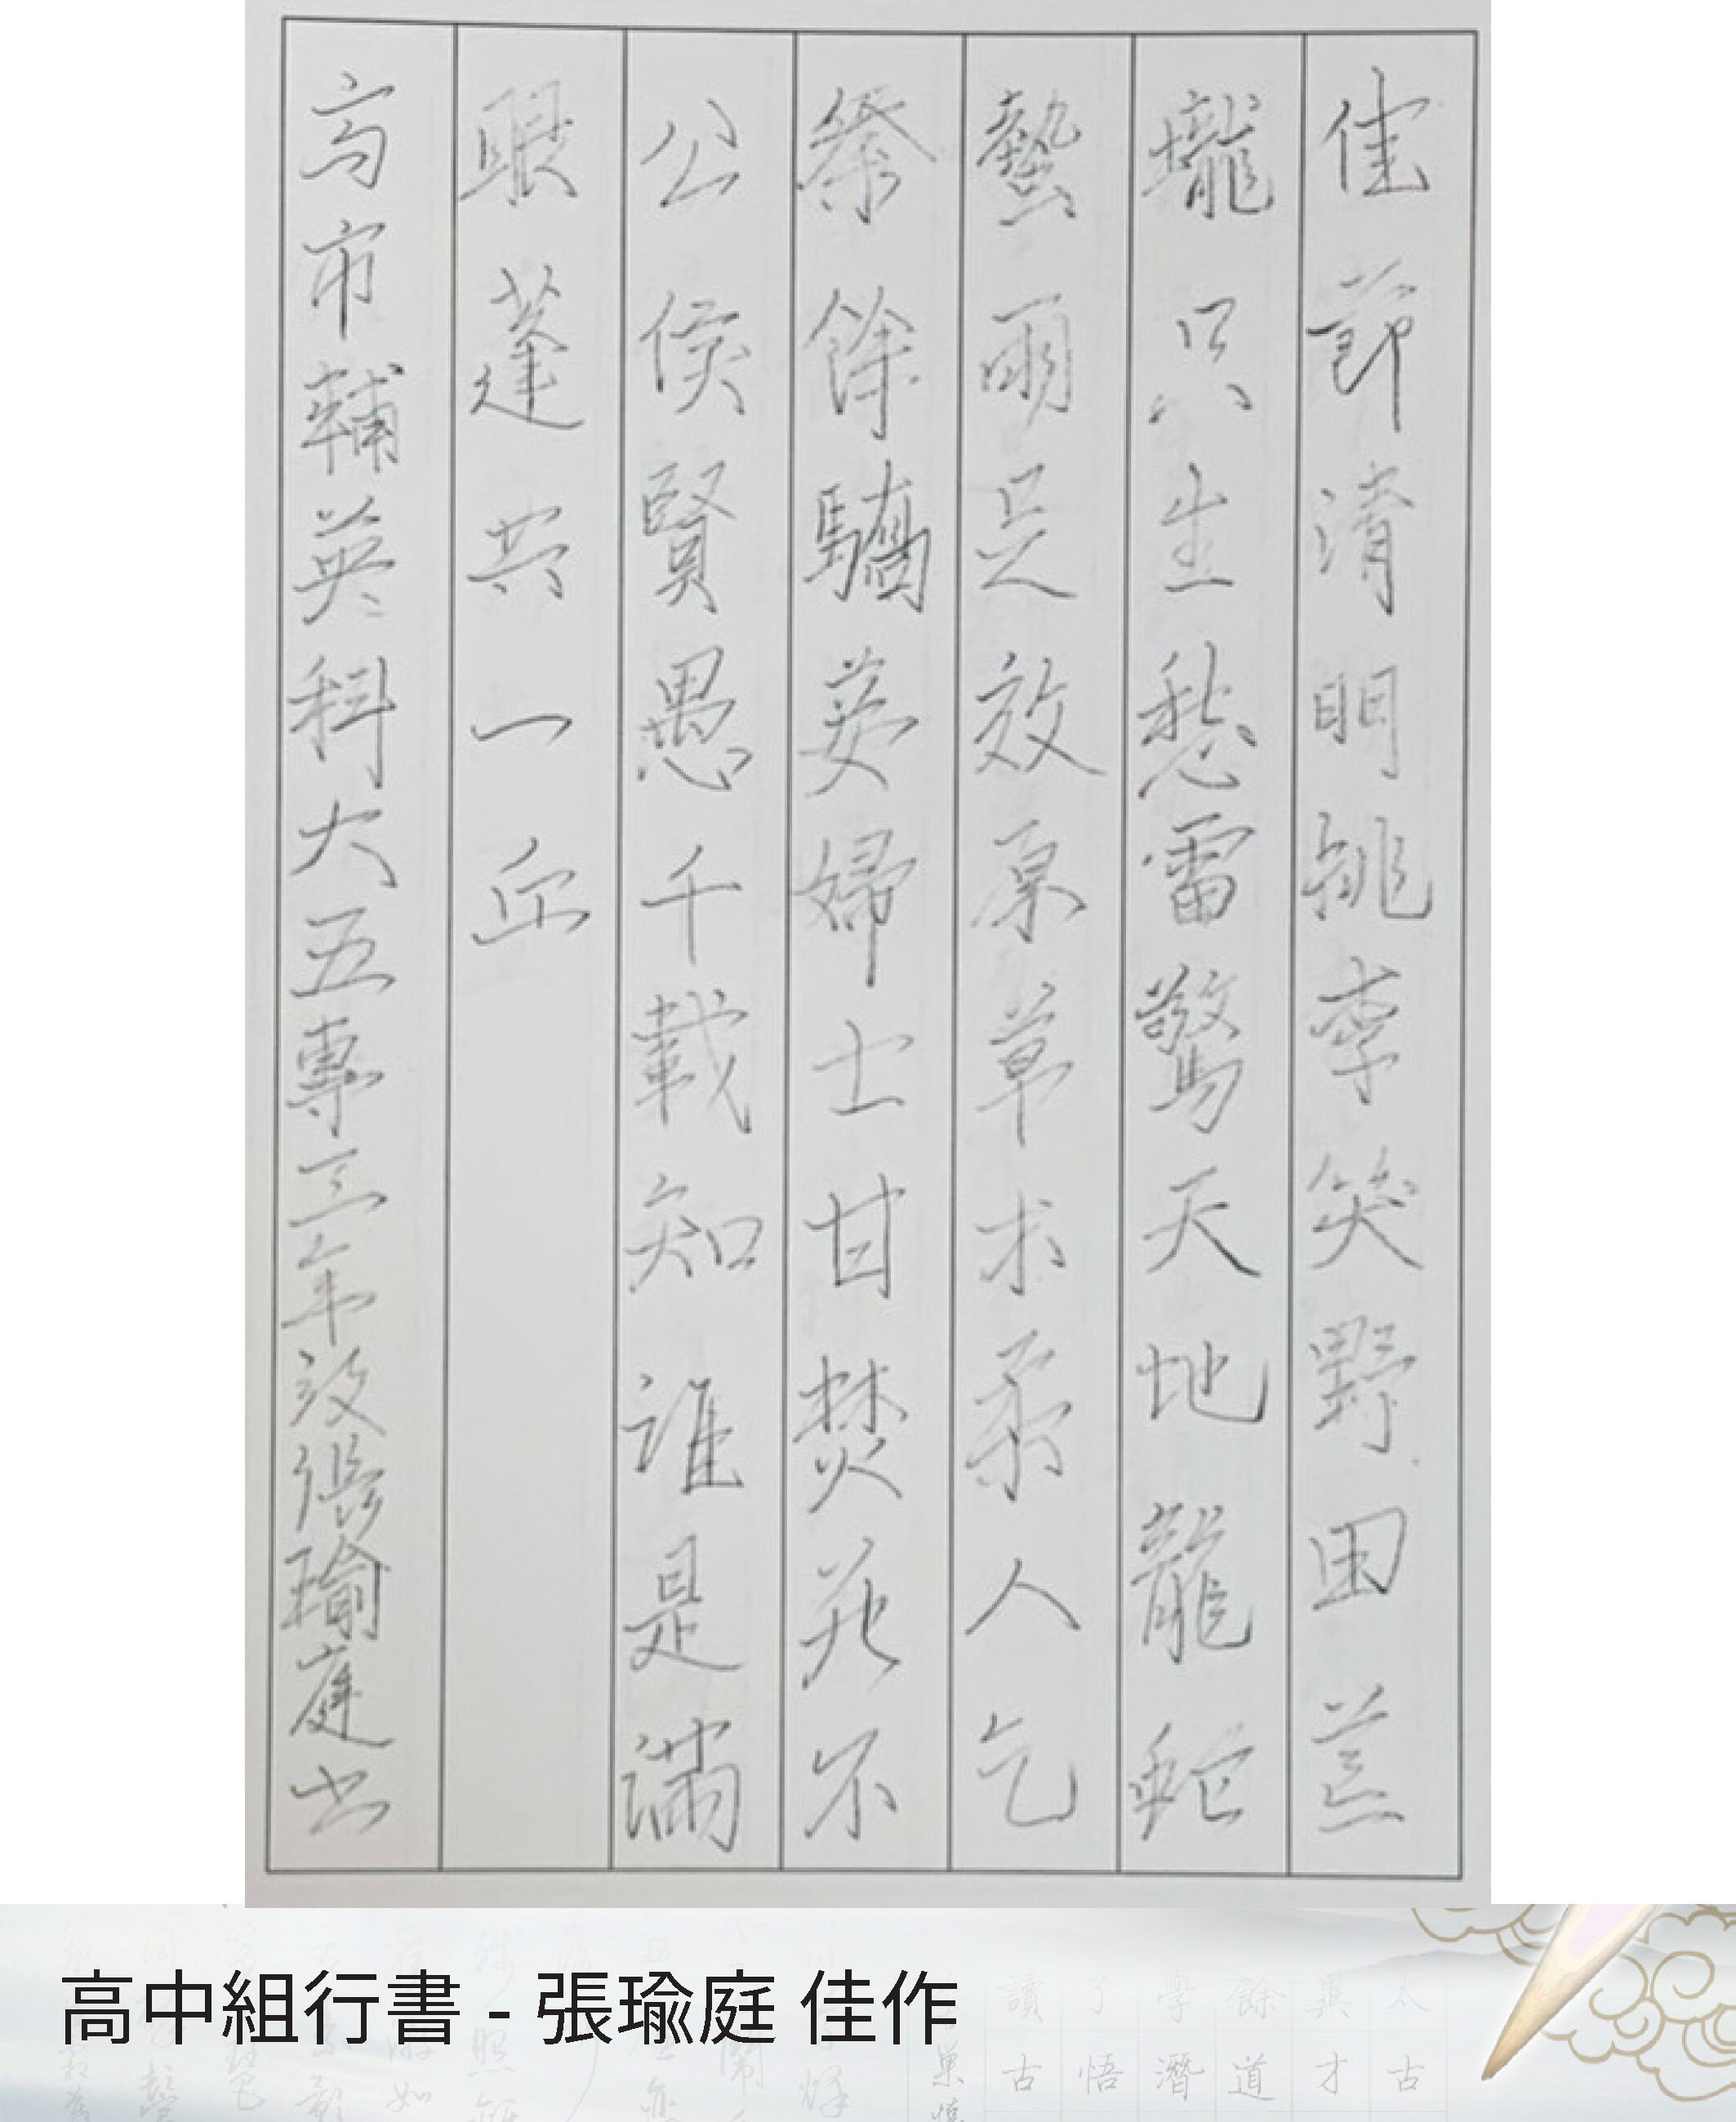 佳節清明桃李笑野田荒
壠只生愁雷驚天地龍蛇
蟄雨足效原草木柔人乞
祭餘驕妾婦士甘焚死不
公侯賢愚千載知誰是滿
眼蓬共一丘
高市輔英科大五專三年級張瑜庭书
高中組行書 - 張瑜庭 佳作